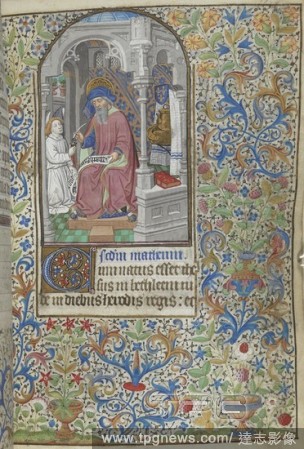 Scdm matheum.
Cum natus esset ihe
sus in bethleem iu
de in diebus herodis regis: et
www.tpgnews.com/ 達志影像